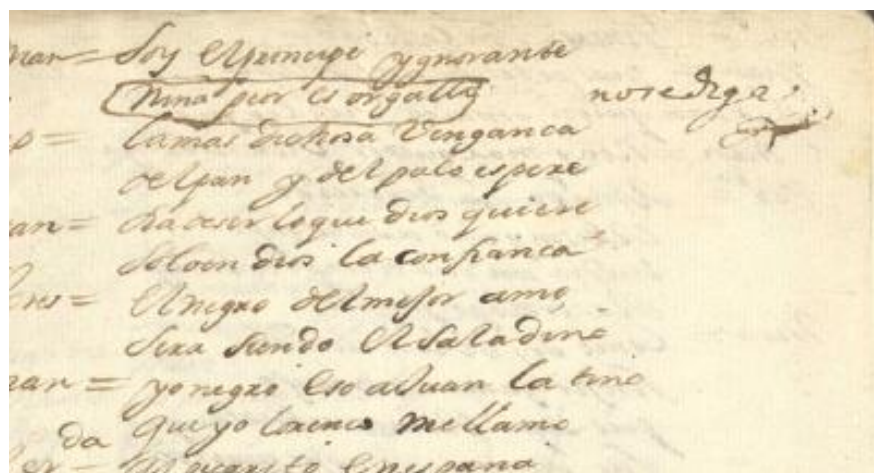 Soy El principe ygnorante
Nina peor es orgatta no se diga
la mas dichosa Venganca
del pan y del palo espere
ha deser lo que dios quiere
Solo en dios la confianca
El negro del mejor amo
Sera siendo El saladino
yo negro Eso a Juan la tino
da que yo Lorenco me llamo